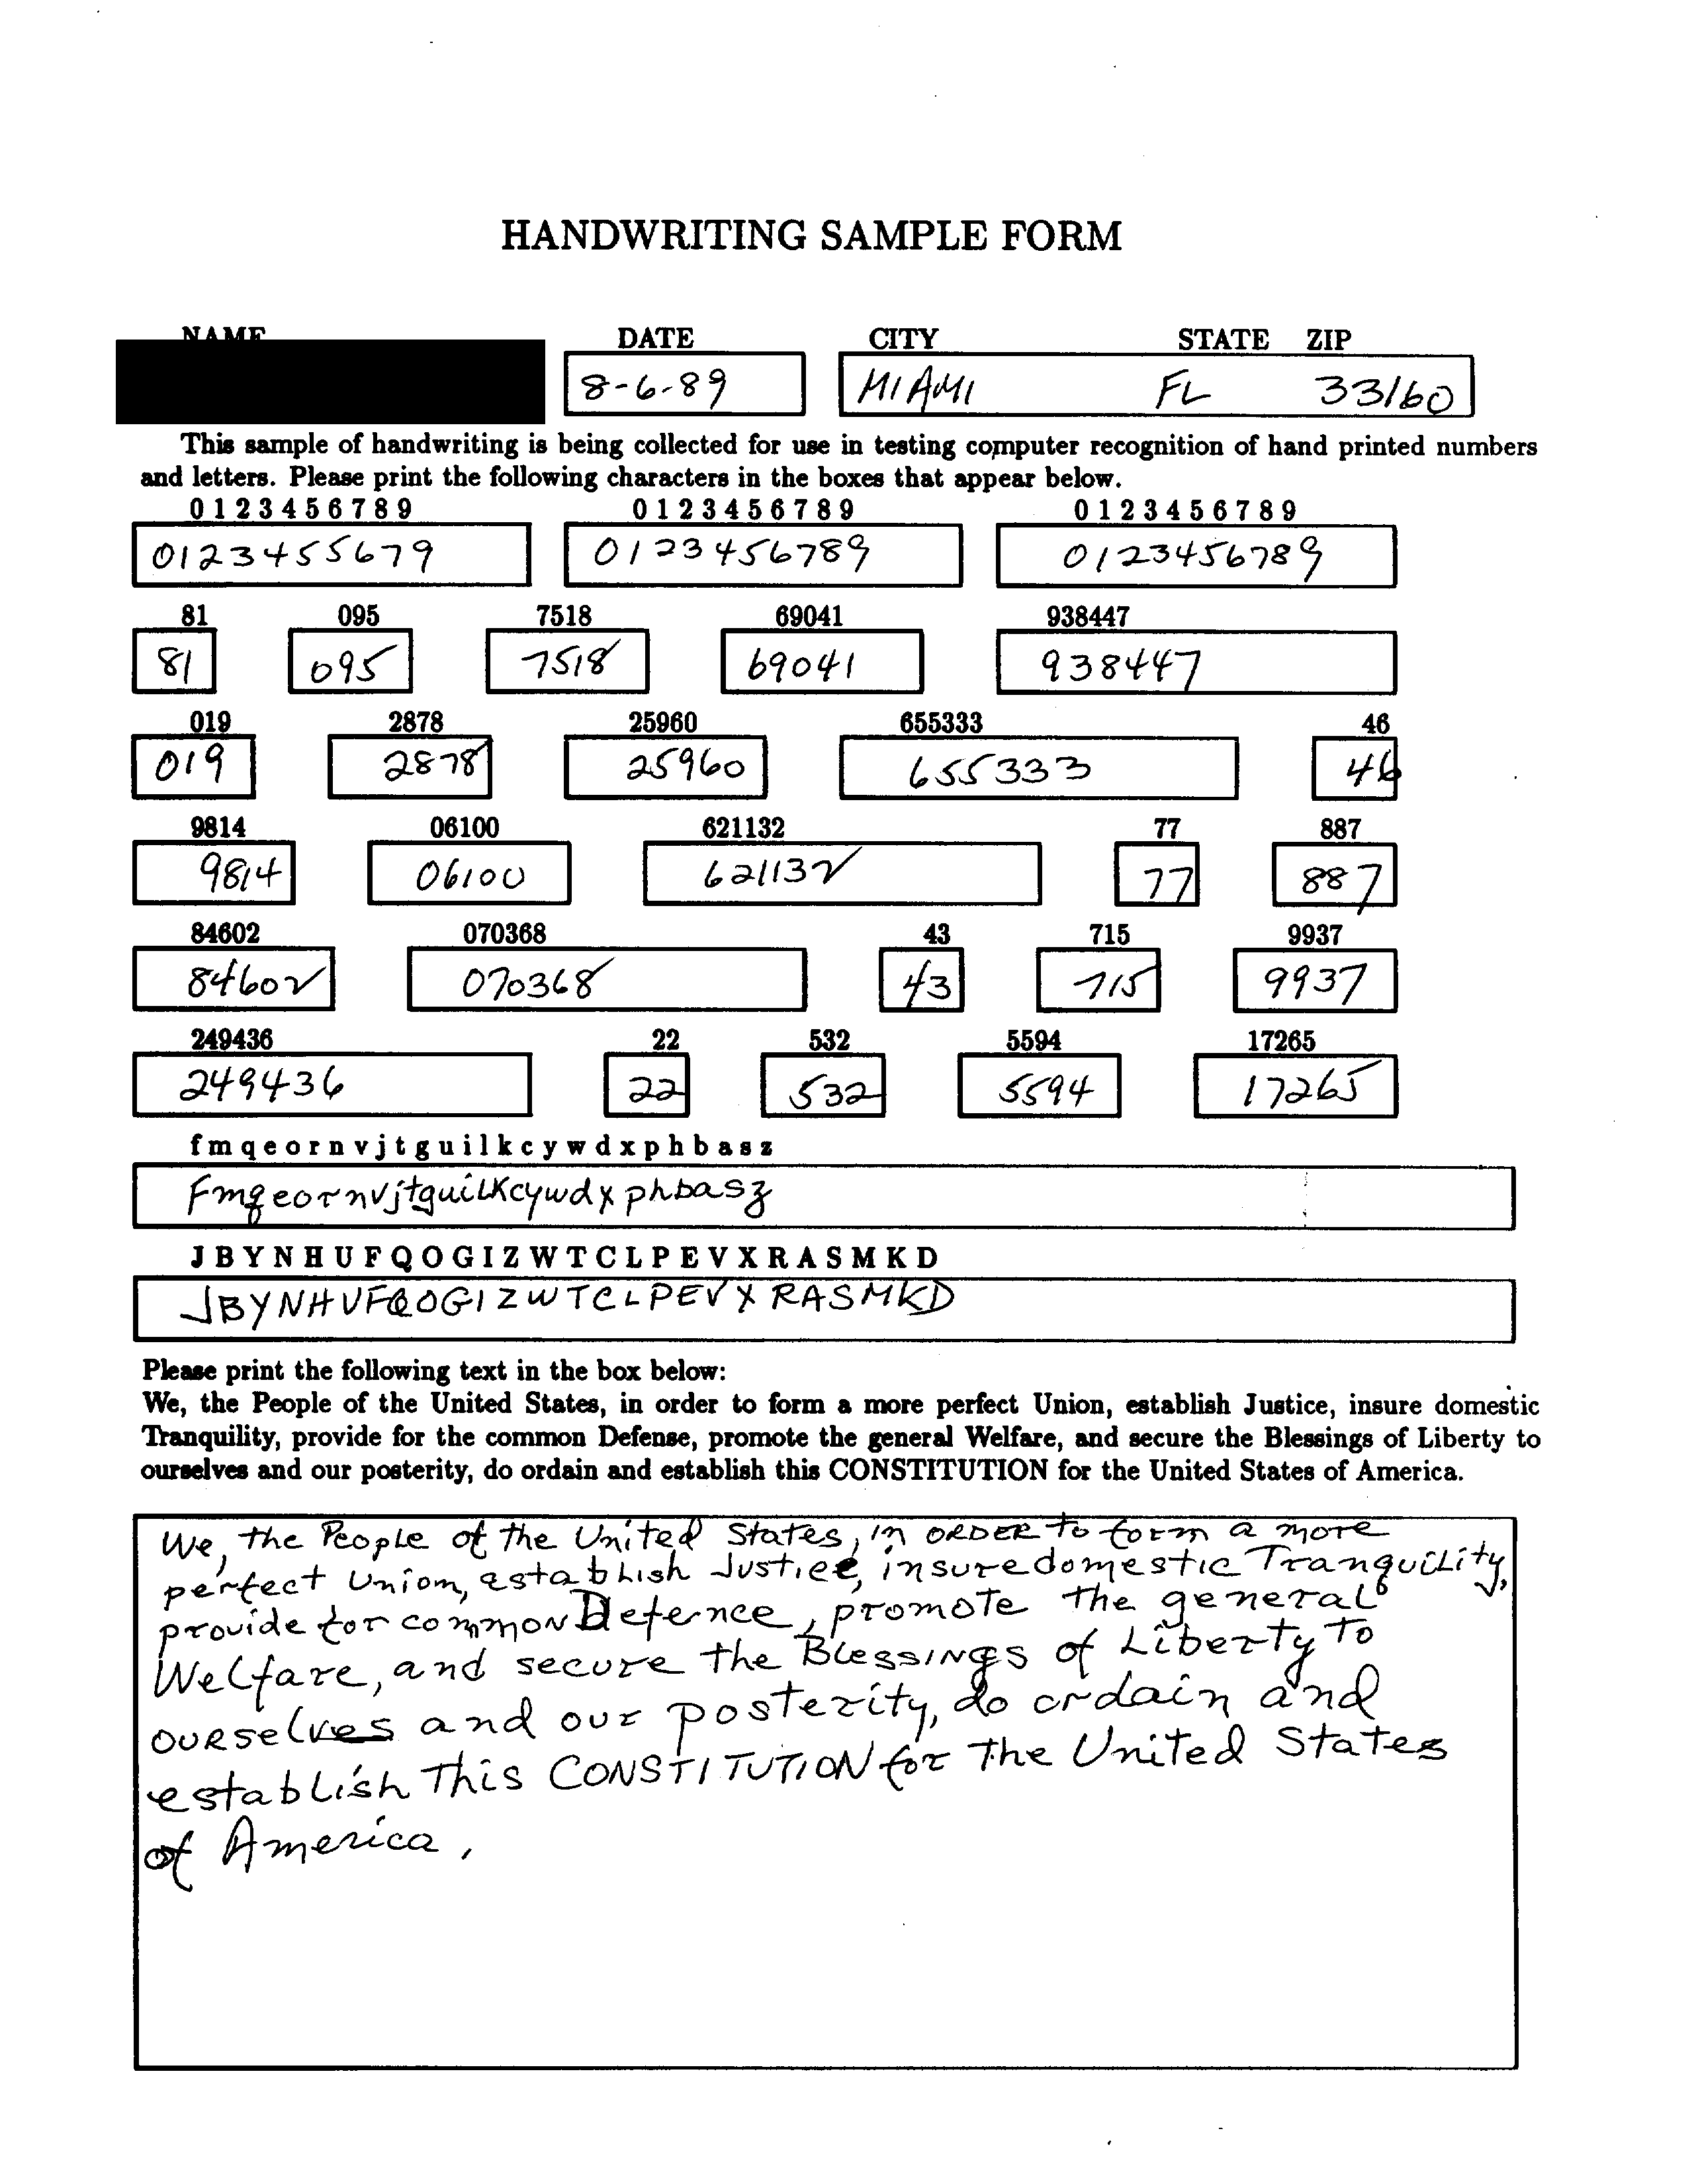 HANDWRITING SAMPLE FORM
NAME DATE CITY STATE ZIP
8-6-89 MIAMI FL 33160
This sample of handwriting is being collected for use in testing computer recognition of hand printed numbers
and letters. Please print the following characters in the boxes that appear below.
0 1 2 3 4 5 6 7 8 9 0 1 2 3 4 5 6 7 8 9 0 1 2 3 4 5 6 7 8 9
0123455679 0123456789 0123456789
81 095 7518 69041 938447
81 095 7518 69041 938447
019 2878 25960 655333 46
019 2878 25960 655333 46
9814 06100 621132 77 887
9814 06100 621132 77 887
84602 070368 43 715 9937
84602 070368 43 715 9937
249436 22 532 5594 17265
249436 22 532 5594 17265
f m q e o r n v j t g u i l k c y w d x p h b a s z
FmqeornvjtguiLKcywdxphbasz
J B Y N H U F Q O G I Z W T C L P E V X R A S M K D
JBYNHUFQOGIZWTCLPEVXRASMKD
Please print the following text in the box below:
We, the People of the United States, in order to form a more perfect Union, establish Justice, insure domestic
Tranquility, provide for the common Defense, promote the general Welfare, and secure the Blessings of Liberty to
ourselves and our posterity, do ordain and establish this CONSTITUTION for the United States of America.
We, the PeopLe of the United States, in ORDER to form a more
perfect Union, establish Justice, insure domestic TranquiLity,
provide for common Defence, promote the general
Welfare, and secure the BLessings of Liberty To
ourselves and our posterity, do ordain and
establish This CONSTITUTION for The United States
of America.